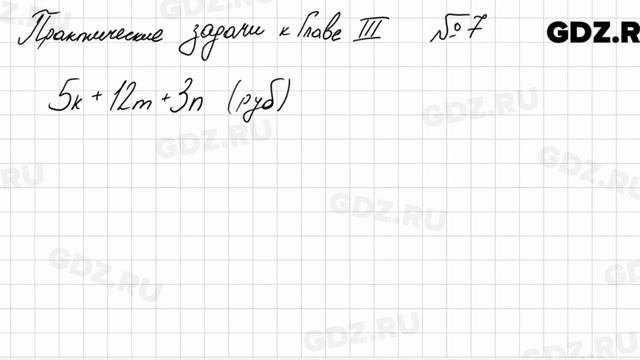 Практические задачи к Главе III №7 GDZ.R
5к + 12m + 3n (руб)
GDZ.RU
GDZ.RU
GDZ.RU
GDZ.RU
GDZ.RU
GDZ.RU